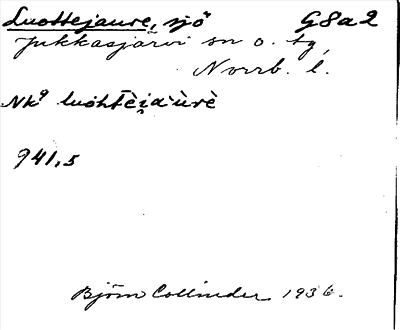 Luottejaure, sjö G8a2
Jukkasjärvi sn o. tg,
Norrb. l.
Nkq luòhtèi̯aùrè
941,5
Björn Collinder 1936.